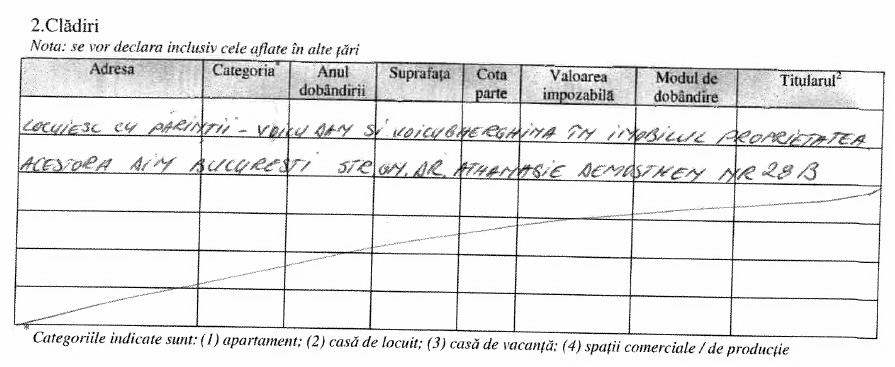 2.Clădiri
Nota: se vor declara inclusiv cele aflate în alte ţări
Adresa Categoria* Anul dobândirii Suprafaţa Cota parte Valoarea impozabilă Modul de dobândire Titularul2
LOCUIESC CU PĂRINTII - VOICU DAN SI VOICU GHERGHINA ÎN IMOBILUL PROPRIETATEA
ACESTORA DIN BUCURESTI STR GN. DR. ATHANASIE DEMOSTHEN NR 28 B
* Categoriile indicate sunt: (1) apartament; (2) casă de locuit; (3) casă de vacanţă; (4) spaţii comerciale / de producţie